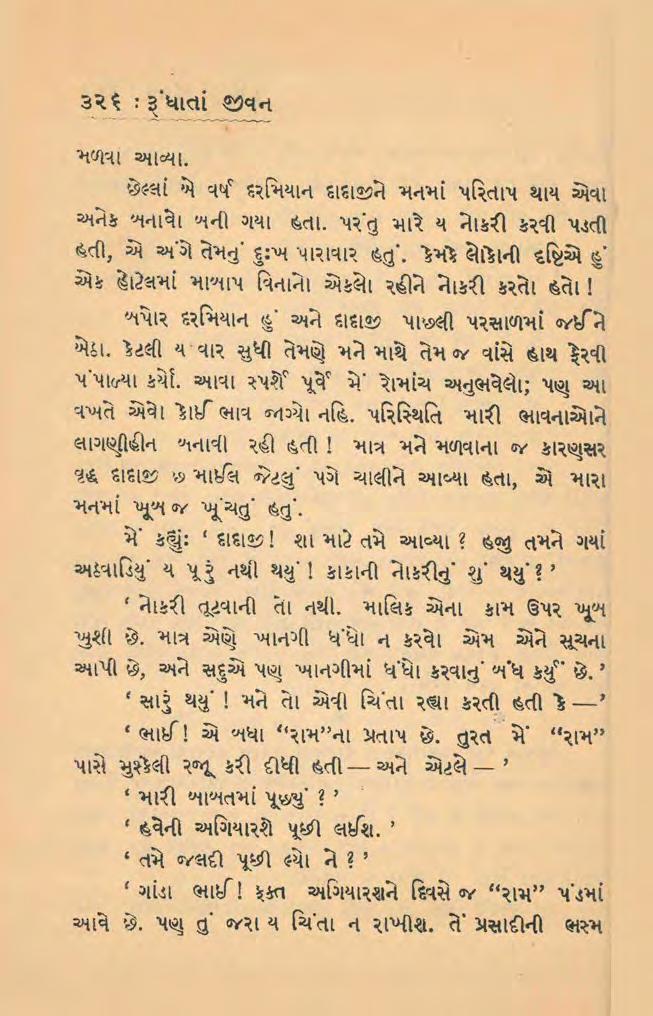 ૩૨૬ : રૂંધાતાં જીવન
મળવા આવ્યા.
છેલ્લાં બે વર્ષ દરમિયાન દાદાજીને મનમાં પરિતાપ થાય એવા
અનેક બનાવો બની ગયા હતા. પરંતુ મારે ય નોકરી કરવી પડતી
હતી, એ અંગે તેમનું દુઃખ પારાવાર હતું. કેમકે લોકોની દૃષ્ટિએ હું
એક હોટેલમાં માબાપ વિનાનો એકલો રહીને નોકરી કરતો હતો !
બપોર દરમિયાન હું અને દાદાજી પાછલી પરસાળમાં જઈને
બેઠા. કેટલી ય વાર સુધી તેમણે મને માથે તેમ જ વાંસે હાથ ફેરવી
પંપાળ્યા કર્યો. આવા સ્પર્શે પૂર્વે મેં રોમાંચ અનુભવેલો; પણ આ
વખતે એવો કોઈ ભાવ જાગ્યો નહિ. પરિસ્થિતિ મારી ભાવનાઓને
લાગણીહીન બનાવી રહી હતી ! માત્ર મને મળવાના જ કારણસર
વૃદ્ધ દાદાજી છ માઈલ જેટલું પગે ચાલીને આવ્યા હતા, એ મારા
મનમાં ખૂબ જ ખૂંચતું હતું.
મેં કહ્યુંઃ ‘ દાદાજી ! શા માટે તમે આવ્યા ? હજી તમને ગયાં
અઠવાડિયું ય પૂરું નથી થયું ! કાકાની નોકરીનું શું થયું ? ’
‘ નોકરી તૂટવાની તો નથી. માલિક એના કામ ઉપર ખૂબ
ખુશી છે. માત્ર એણે ખાનગી ધંધો ન કરવો એમ એને સૂચના
આપી છે, અને સદુએ પણ ખાનગીમાં ધંધો કરવાનું બંધ કર્યું છે. ’
‘ સારું થયું ! મને તો એવી ચિંતા રહ્યા કરતી હતી કે — ’
‘ ભાઈ ! એ બધા “રામ”ના પ્રતાપ છે. તુરત મેં “રામ”
પાસે મુશ્કેલી રજૂ કરી દીધી હતી — અને એટલે — ’
‘ મારી બાબતમાં પૂછ્યું ? ’
‘ હવેની અગિયારશે પૂછી લઈશ. ’
‘ તમે જલદી પૂછી લ્યો ને ? ’
‘ ગાંડા ભાઈ ! ફક્ત અગિયારશને દિવસે જ “રામ” પંડમાં
આવે છે. પણ તું જરા ય ચિંતા ન રાખીશ. તેં પ્રસાદીની ભસ્મ